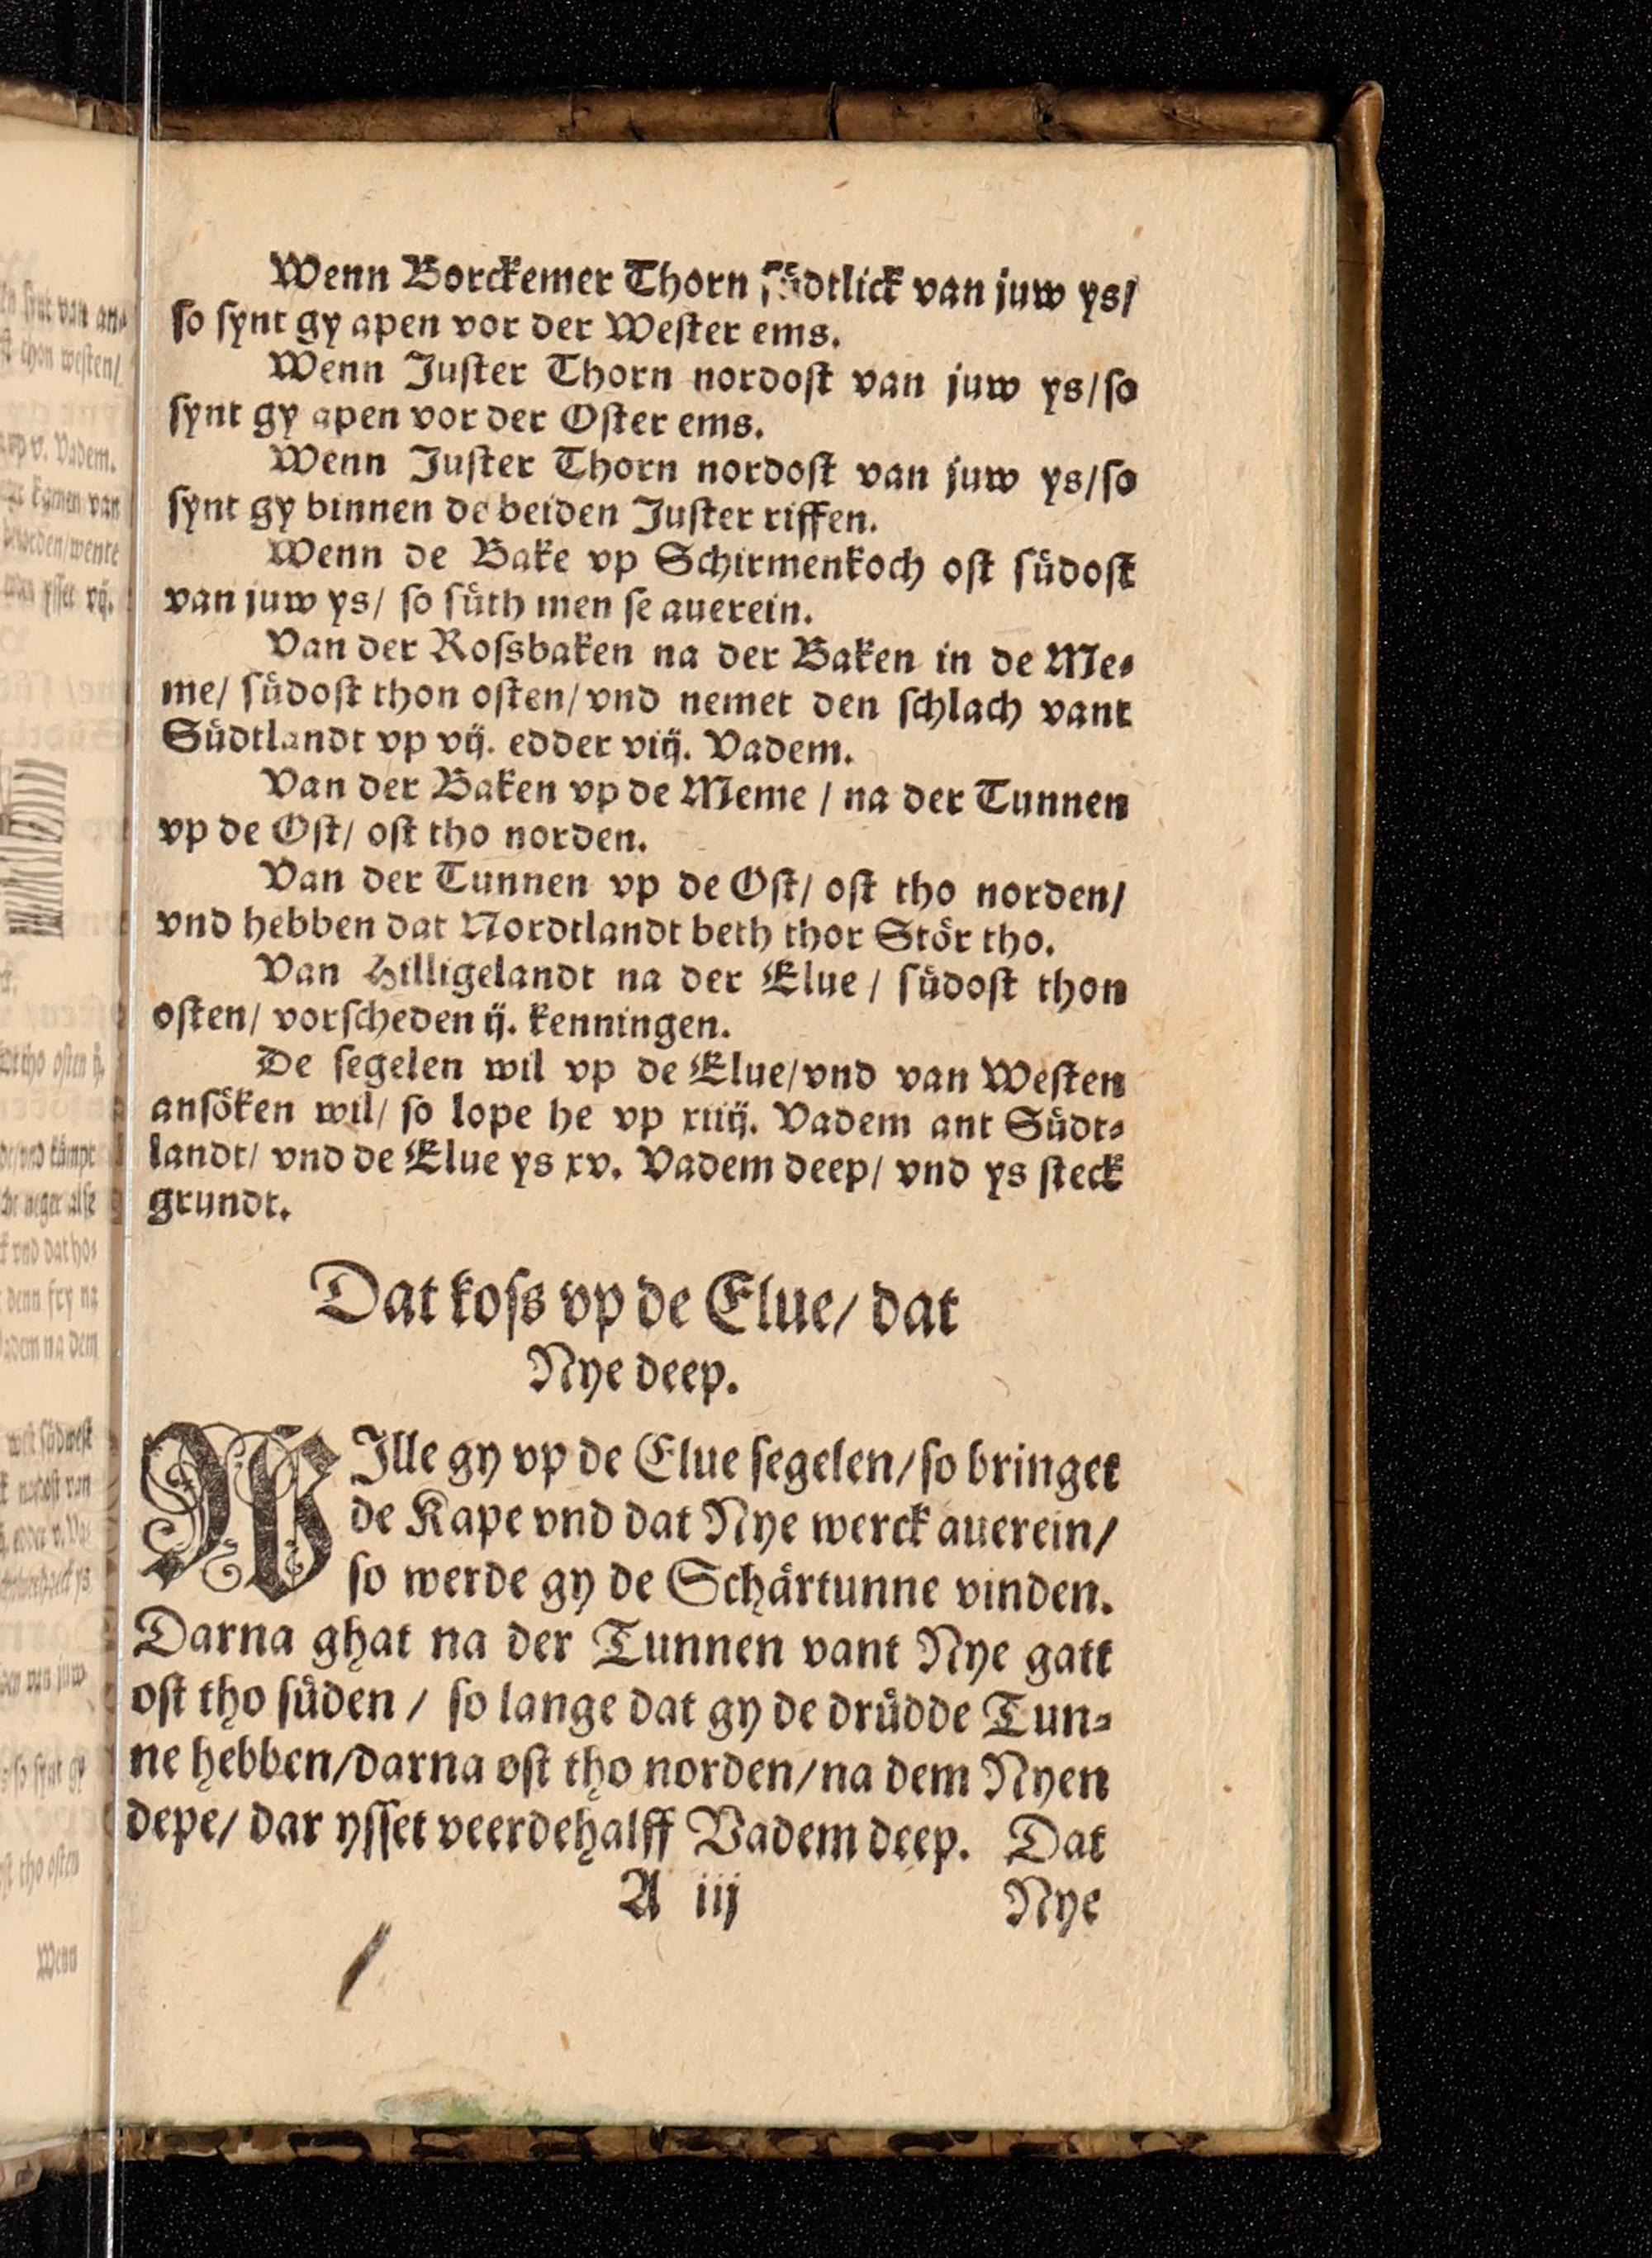 Wenn Borckemer Thorn ſuͤdtlick van juw ys/
ſo ſynt gy apen vor der Weſter ems.
Wenn Juſter Thorn nordoſt van juw ys/ſo
ſynt gy apen vor der Oſter ems.
Wenn Juſter Thorn nordoſt van juw ys/ſo
ſynt gy binnen de beiden Juſter riffen.
Wenn de Bake vp Schirmenkoch oſt ſuͤdoſt
van juw ys/ ſo ſuͤth men ſe auerein.
Van der Roſsbaken na der Baken in de Me⸗
me/ ſuͤdoſt thon oſten/ vnd nemet den ſchlach vant
Suͤdtlandt vp vij. edder viij. Vadem.
Van der Baken vp de Meme / na der Tunnen
vp de Oſt/ oſt tho norden.
Van der Tunnen vp de Oſt/ oſt tho norden/
vnd hebben dat Nordtlandt beth thor Stoͤr tho.
Van Hilligelandt na der Elue / ſuͤdoſt thon
oſten/ vorſcheden ij. kenningen.
De ſegelen wil vp de Elue/vnd van Weſten
anſoͤken wil/ ſo lope he vp xiiij. Vadem ant Suͤdt⸗
landt/ vnd de Elue ys xv. Vadem deep/ vnd ys ſteck
grundt.
Dat koſs vp de Elue/ dat
Nye deep.
WIlle gy vp de Elue ſegelen/ ſo bringet
de Kape vnd dat Nye werck auerein/
ſo werde gy de Schaͤrtunne vinden.
Darna ghat na der Tunnen vant Nye gatt
oſt tho ſuͤden / ſo lange dat gy de druͤdde Tun⸗
ne hebben/darna oſt tho norden/na dem Nyen
depe/ dar yſſet veerdehalff Vadem deep. Dat
A iij Nye